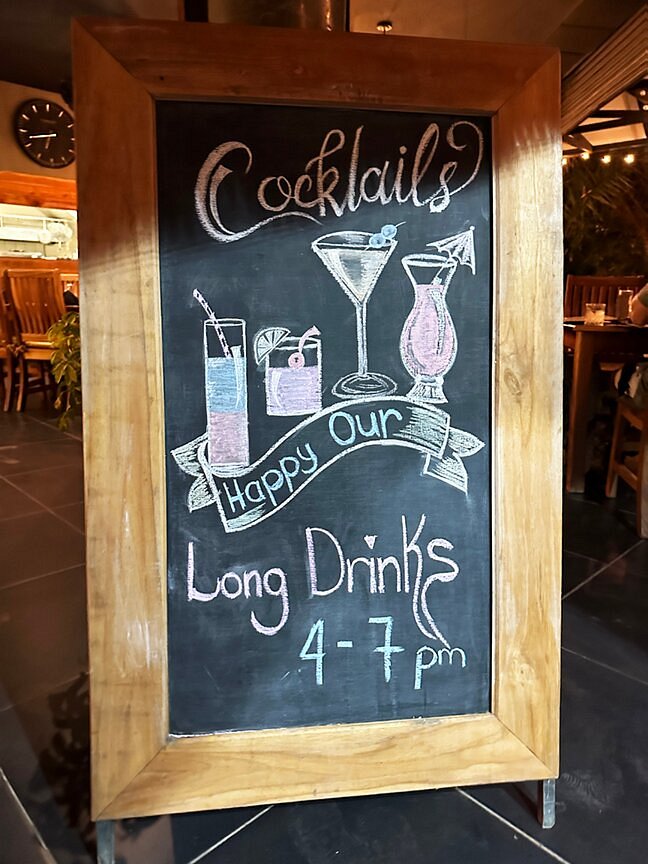 Cocktails
Happy Our
Long Drinks
4-7 pm